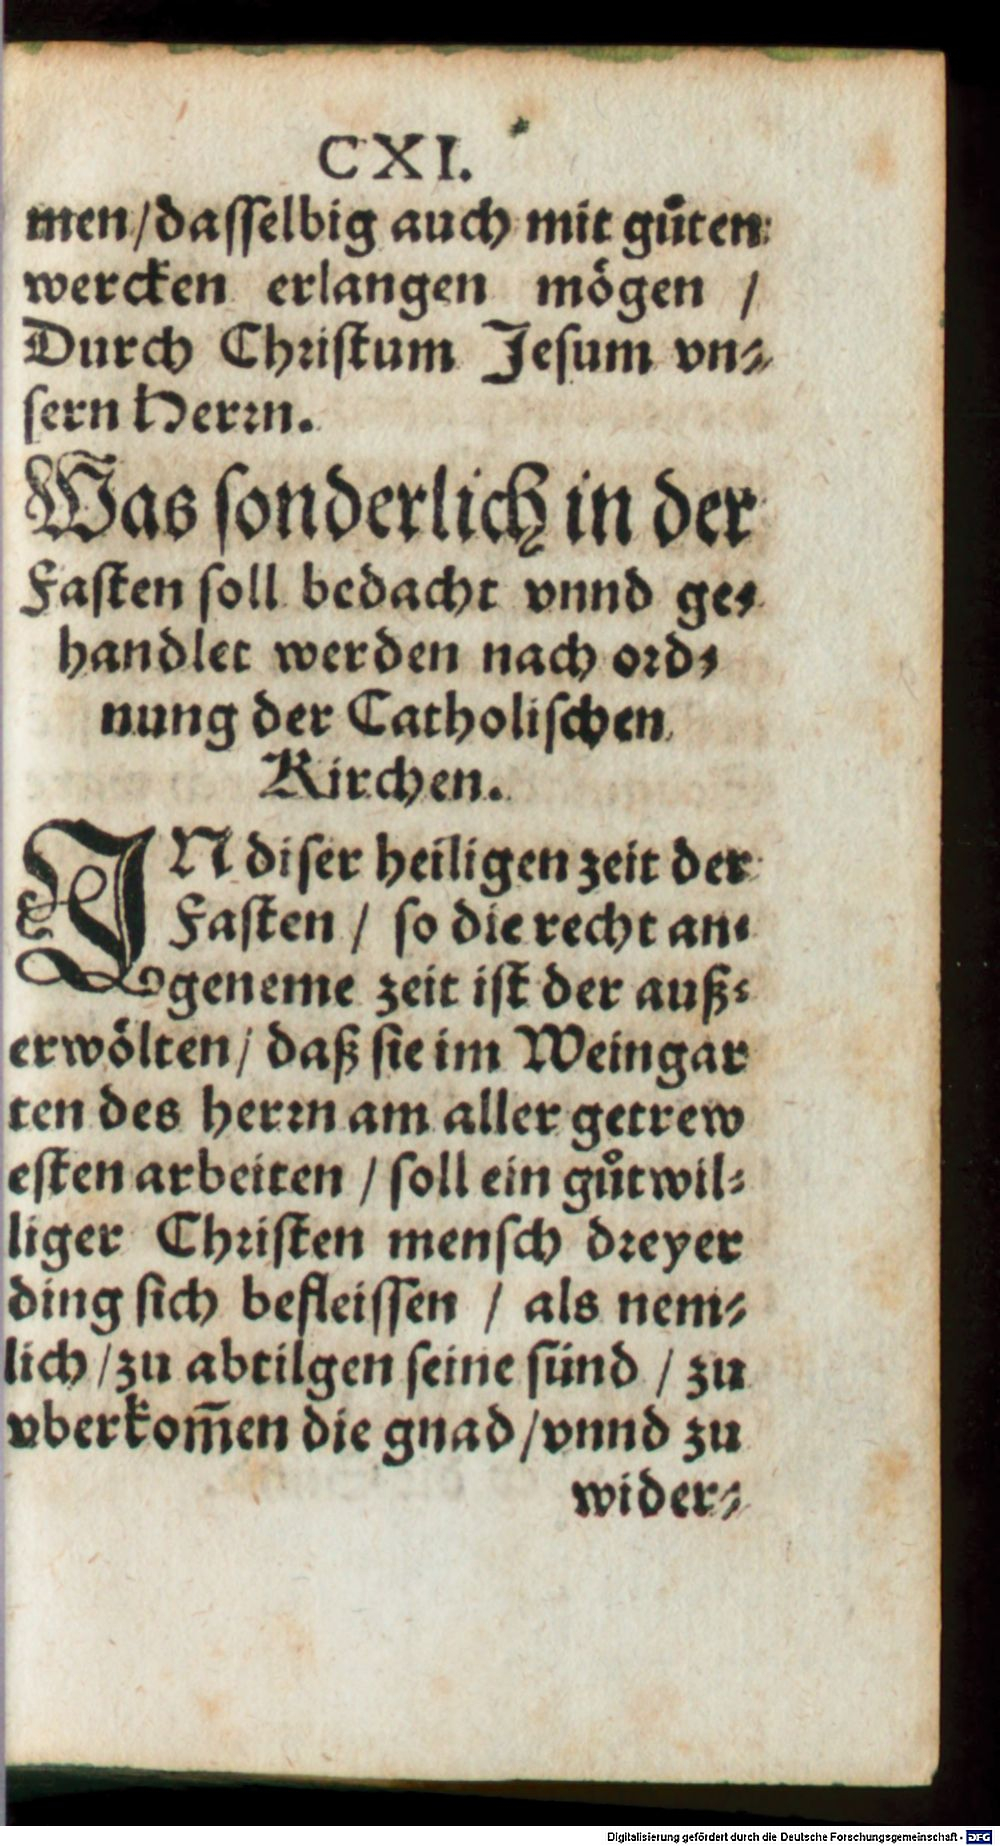 CXI.
men/dasselbig auch mit gůten
wercken erlangen mögen /
Durch Christum Jesum vn⸗
sern Herrn.
Was sonderlich in der
Fasten soll bedacht vnnd ge⸗
handlet werden nach ord⸗
nung der Catholischen
Kirchen.
IN diser heiligen zeit der
Fasten / so die recht an⸗
geneme zeit ist der auß⸗
erwölten / daß sie im Weingar
ten des herrn am aller getrew
esten arbeiten / soll ein gůtwil⸗
liger Christen mensch dreyer
ding sich befleissen / als nem⸗
lich / zu abtilgen seine sünd / zu
vberkom̃en die gnad / vnnd zu
wider⸗
Digitalisierung gefördert durch die Deutsche Forschungsgemeinschaft - DFG